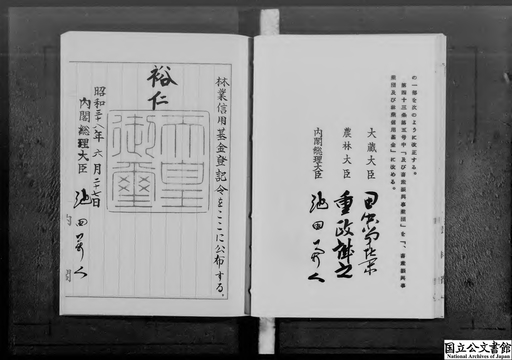 の一部を次のように改正する。
第四十三条第五号中「及び畜産振興事業団」を「、畜産振興事
業団及び林業信用基金」に改める。
大蔵大臣 田中角栄
農林大臣 重政誠之
内閣総理大臣 池田勇人
林業信用基金登記令をここに公布する。
裕仁
天皇
御璽
昭和三十八年六月二十七日
内閣総理大臣 池田勇人
内閣
国立公文書館
National Archives of Japan